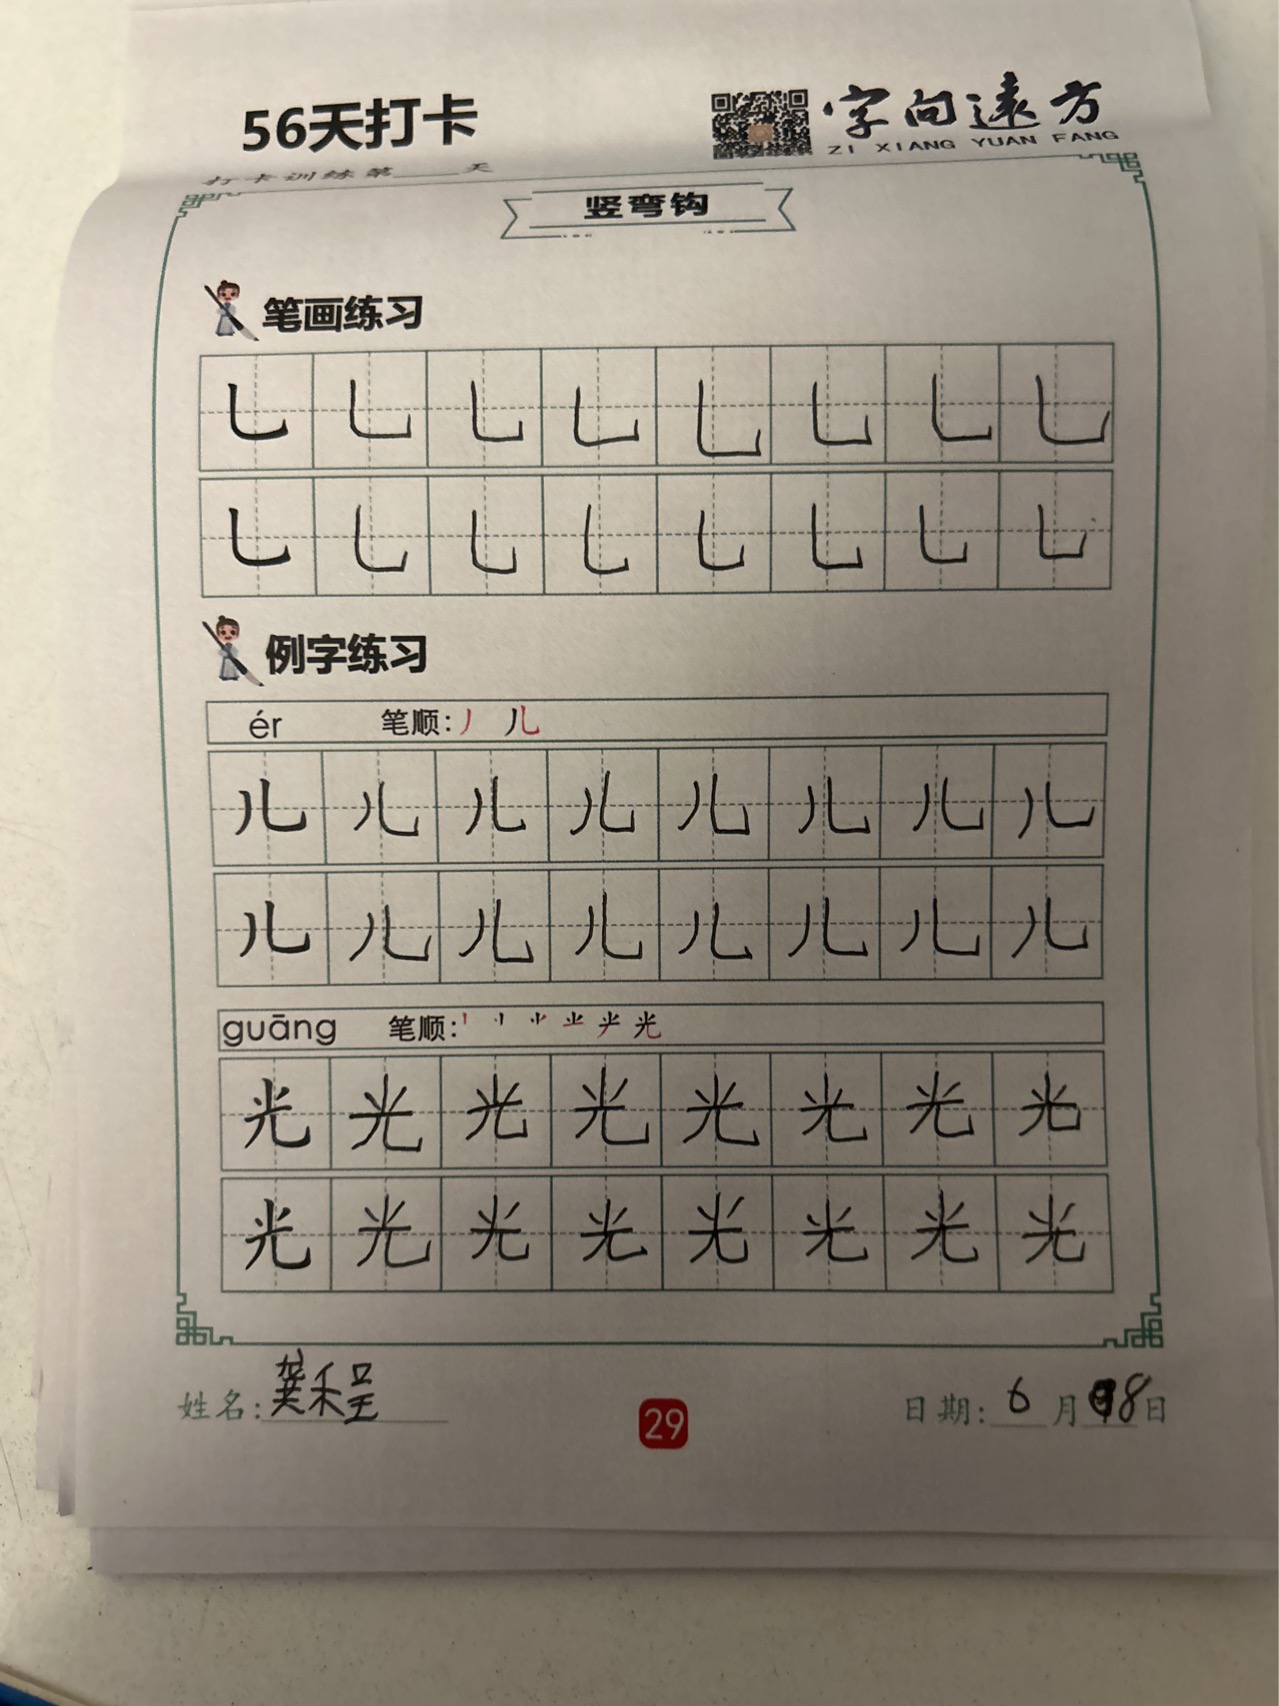 56天打卡
字向遠方
ZI XIANG YUAN FANG
打卡训练第____天
竖弯钩
笔画练习
乚 乚 乚 乚 乚 乚 乚 乚
乚 乚 乚 乚 乚 乚 乚 乚
例字练习
ér 笔顺:丿 儿
儿 儿 儿 儿 儿 儿 儿 儿
儿 儿 儿 儿 儿 儿 儿 儿
guāng 笔顺:丨 光
光 光 光 光 光 光 光 光
光 光 光 光 光 光 光 光
姓名:龚禾呈
29
日期:6月18日